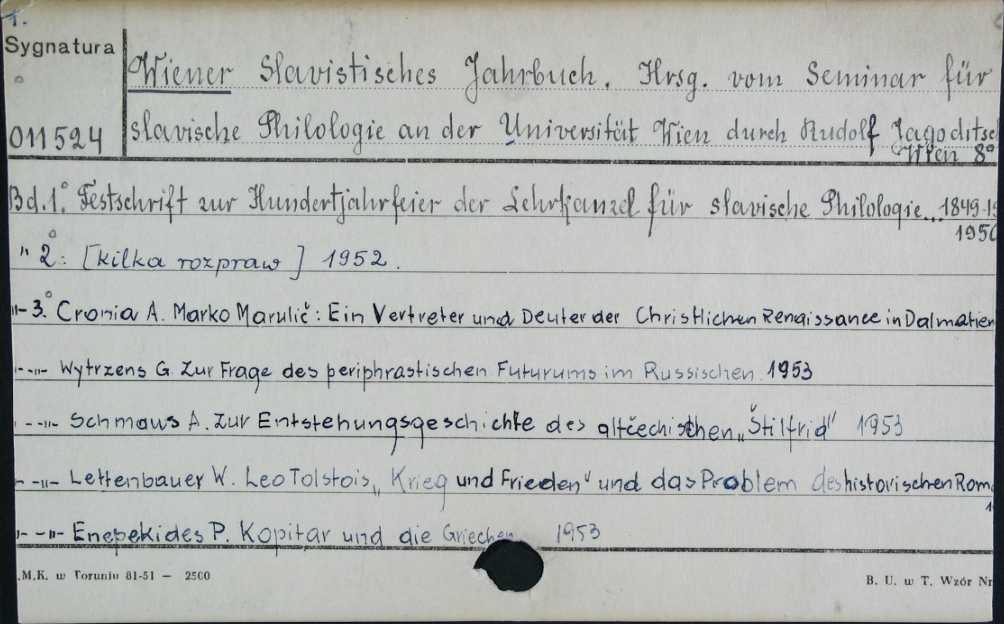 1.
Sygnatura
Wiener Slavistisches Jahrbuch. Hrsg. vom Seminar für
011524
slavische Philologie an der Universität Wien durch Rudolf Jagoditsc
Wien 8°
Bd. 1.° Festschrift zur Hundertjahrfeier der Lehrkanzel für slavische Philologie... 1849-19
1950
" 2.°: [kilka rozpraw] 1952.
"- 3.° Cronia A. Marko Marulič: Ein Vertreter und Deuter der Christlichen Renaissance in Dalmatien
"- -"- Wytrzens G. Zur Frage des periphrastischen Futurums im Russischen 1953
"- -"- Schmaus A. Zur Entstehungsgeschichte des altčechischen „Štilfrid" 1953
"- -"- Lettenbauer W. Leo Tolstois „Krieg und Frieden" und das Problem des historischen Rom
1
"- -"- Enepekides P. Kopitar und die Griechen 1953
.M.K. w Toruniu 81-51 — 2500
B. U. w T. Wzór Nr